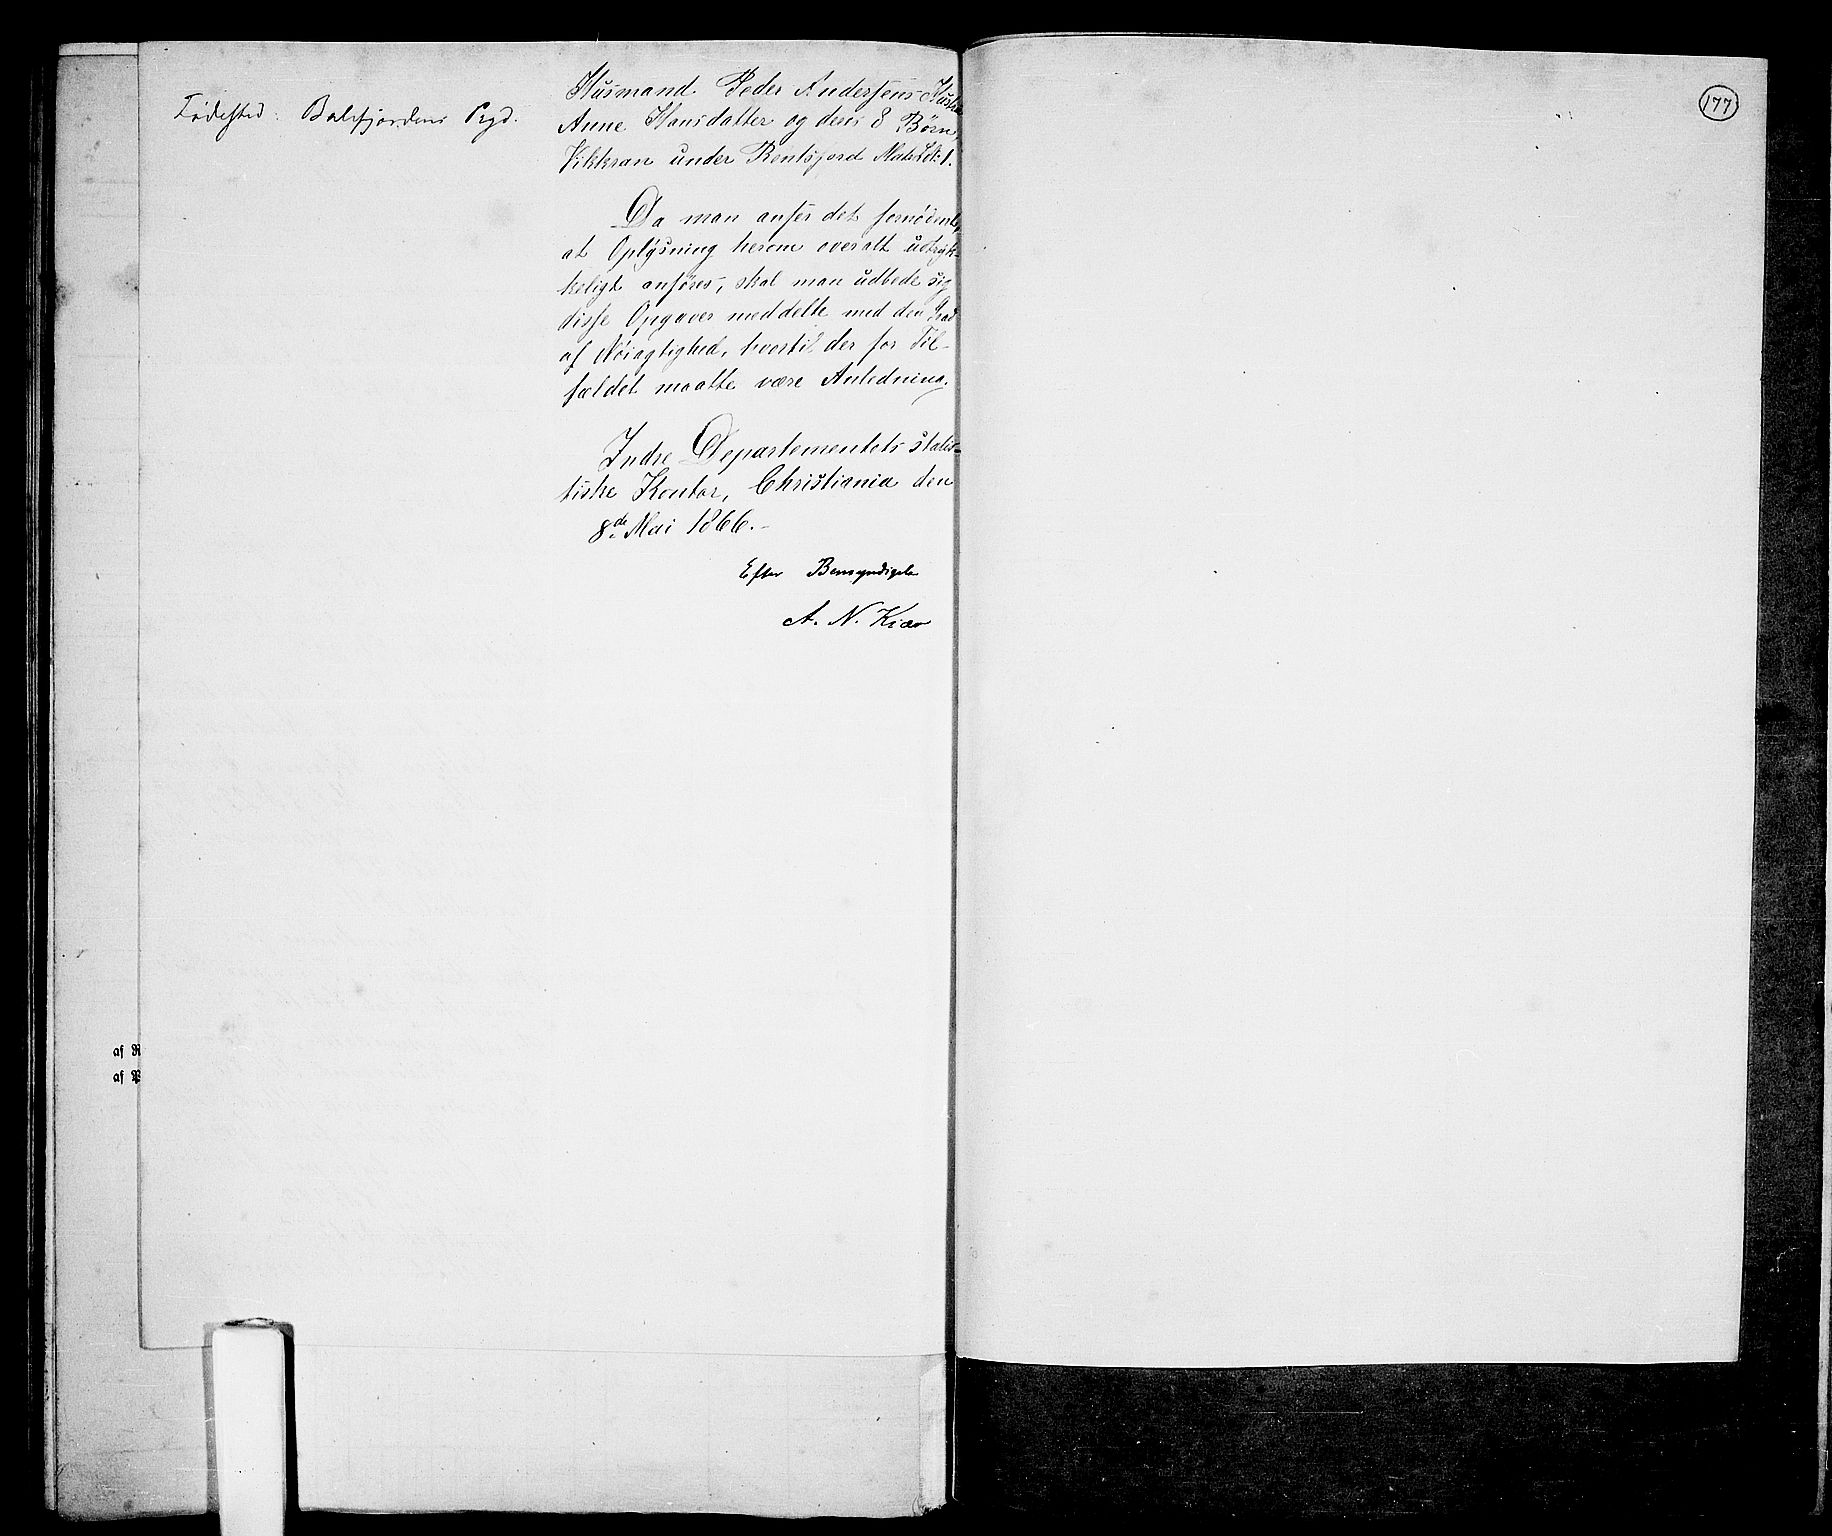 177
Fødested: Balsfjordens Prgd.
Husmand Peder Andersens Hustru
Anne Hansdatter og deres 8 Børn,
Vikkran under Bentsjord Matr. Lit. 1.
Da man anser det fornødent,
at Oplysning herom overalt udtryk-
keligt anføres, skal man udbede sig
disse Opgaver meddelte med den Grad
af Nøiagtighed, hvortil der for Til-
fældet maatte være Anledning.
Indre Departementets statis-
tiske Kontor, Christiania den
8de Mai 1866.-
Efter Bemyndigelse
A. N. Kiær
af R
af P